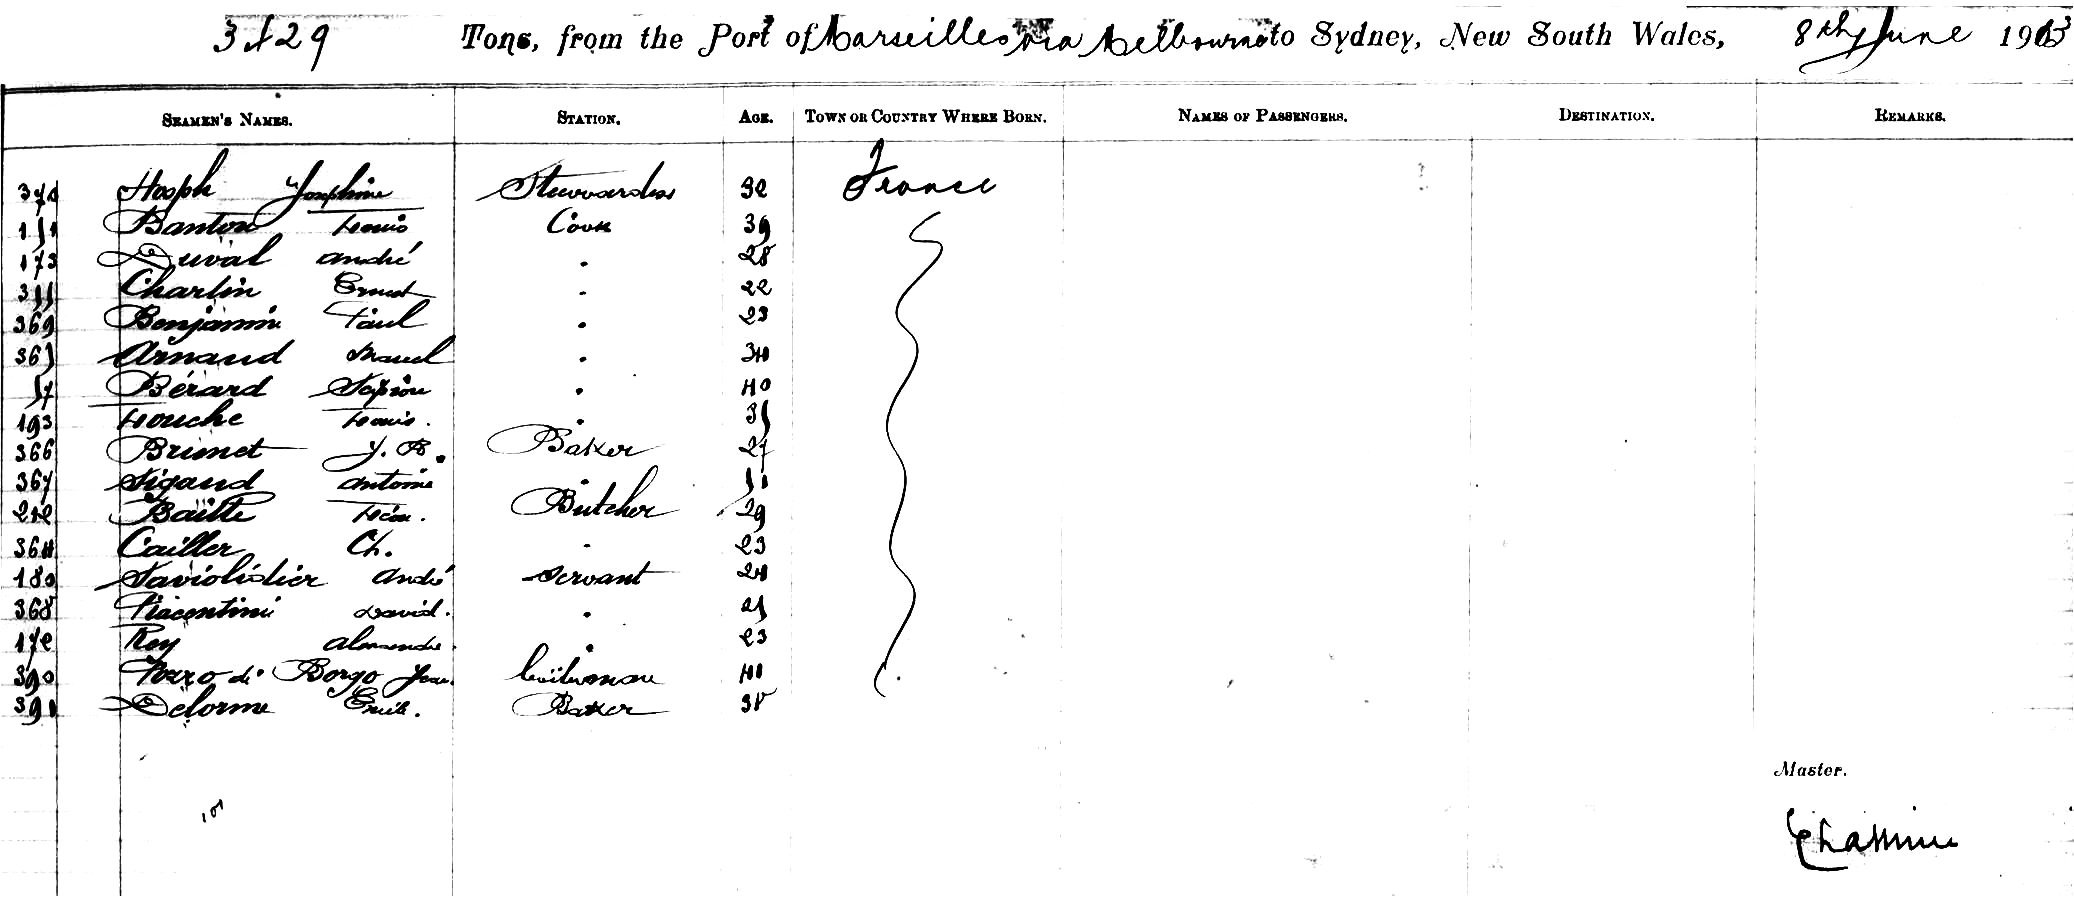 3529 Tons, from the Port of Marseilles via Melbourne to Sydney, New South Wales, 8th June 1903
SEAMEN'S NAMES. STATION. AGE. TOWN OR COUNTRY WHERE BORN. NAMES OF PASSENGERS. DESTINATION. REMARKS.
370 Hosph Josephine Stewardess 32 France
151 Banton Louis Cook 39
173 Duval André . 28
355 Charlin Ernest . 22
369 Benjamin Paul . 23
365 Arnaud Marcel . 34
57 Bérard . 40
193 Louche Louis . 35
366 Brunet J. B. Baker 27
367 Sigaud Antoine . 51
212 Baille Léon. Butcher 29
364 Cailler Ch. . 23
180 André Servant 24
368 Piacentini David. . 25
172 Roy . 23
390 Pozzo di Borgo Jean 41
391 Delorme Emile. Baker 38
Master.